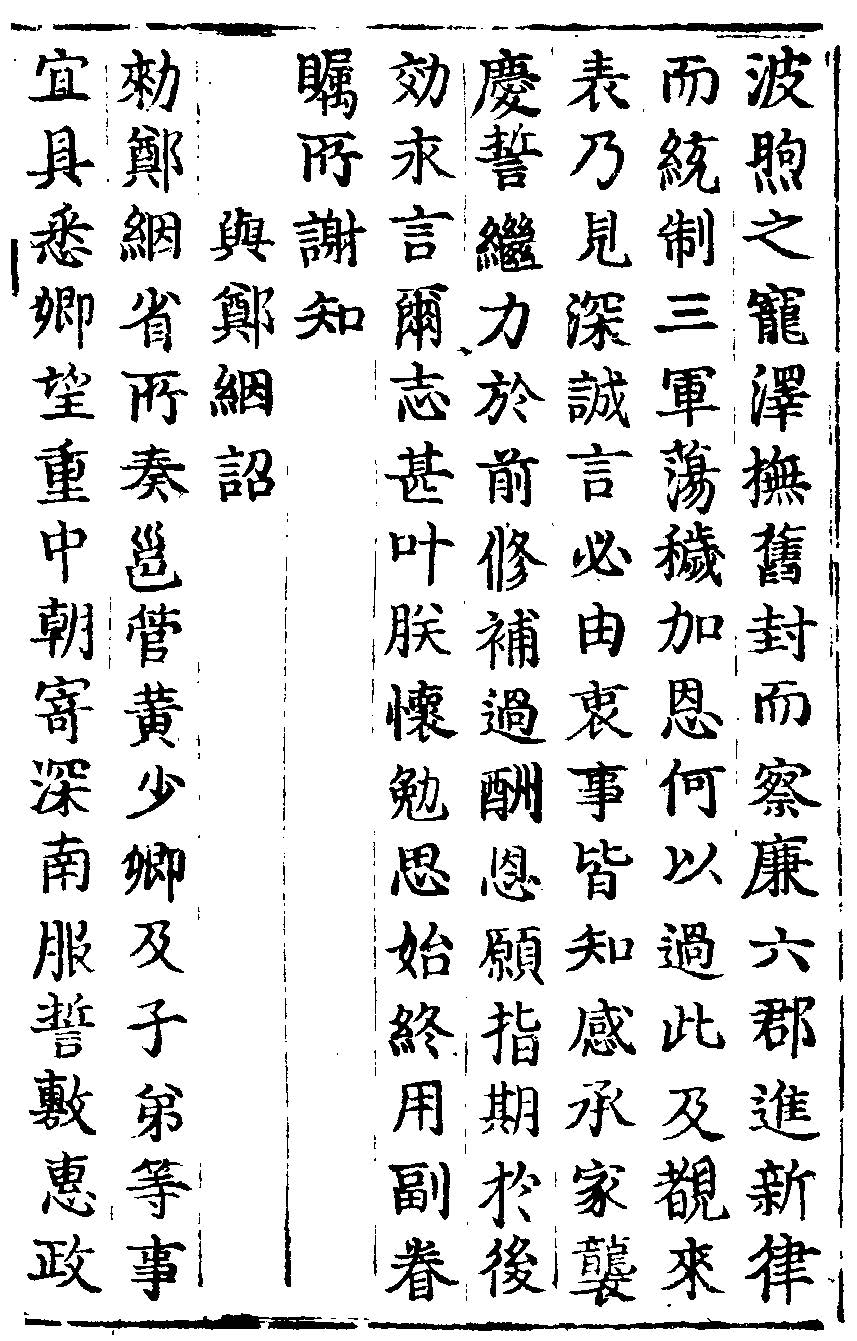 波煦之寵澤撫舊封而察廉六郡進新律
而統制三軍蕩穢加恩何以過此及覩來
表乃見深誠言必由衷事皆知感承家襲
慶誓繼力於前修補過酬恩願指期於後
効求言爾志甚叶朕懷勉思始終用副眷
矚所謝知
與鄭絪詔
勑鄭絪省所奏邕管黄少卿及子弟等事
宜具悉卿望重中朝寄深南服誓敷惠政